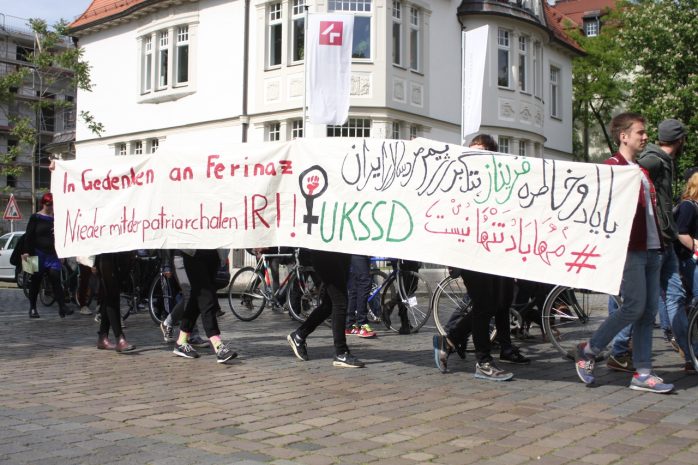 In Gedenken an Ferinaz
Nieder mit der patriarchalen IRI!!
UKSSD
با یاد و خاطره فریناز ننگ بر رژیم مردسالار ایران
#مهاباد تنها نیست